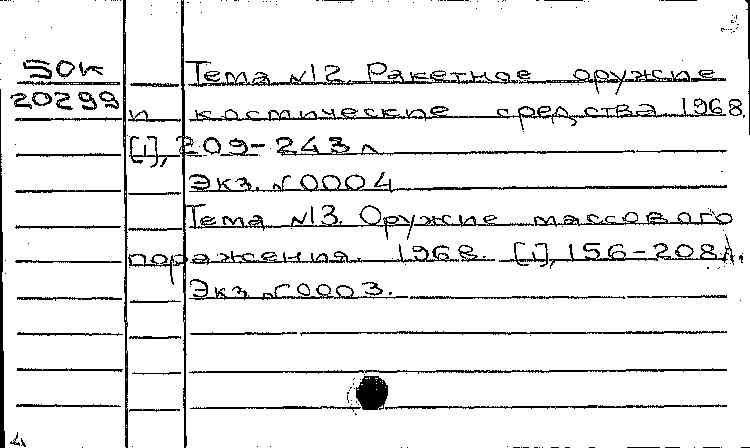 50к
20299
Тема №12 Ракетное оружие
и космические средства 1968.
[1], 209-243 л
Экз. №0004
Тема №13. Оружие массового
поражения. 1968. [1], 156-208 л.
Экз №0003.